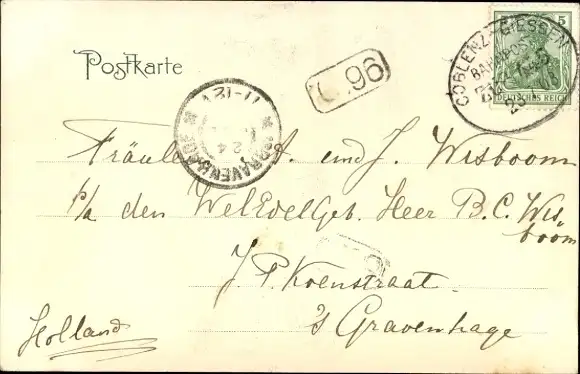 Postkarte
5
DEUTSCHES REICH
COBLENZ-GIESSEN
BAHNPOST
ZUG
'S GRAVENHAGE
24
96
Fräulein A. und J. Wisboom
p/a den WelEdelGeb. Heer B.C. Wis-
boom
J. P. Koenstraat
's Gravenhage
Holland